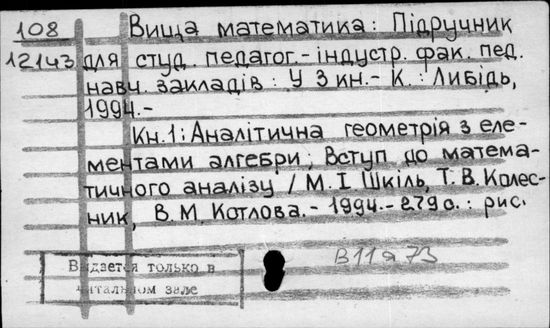 108 Вища математика: Підручник
12143 для студ. педагог.-індустр. фак. пед.
навч. закладів: У 3 кн.- К.: Либідь,
1994.-
Кн.1: Аналітична геометрія з еле-
ментами алгебри; Вступ до матема-
тичного аналізу / М. І Шкіль, Т. В. Колес-
ник, В. М. Котлова.- 1994.- 279 с.: рис.
В11я73
Выдается только в
читальном зале